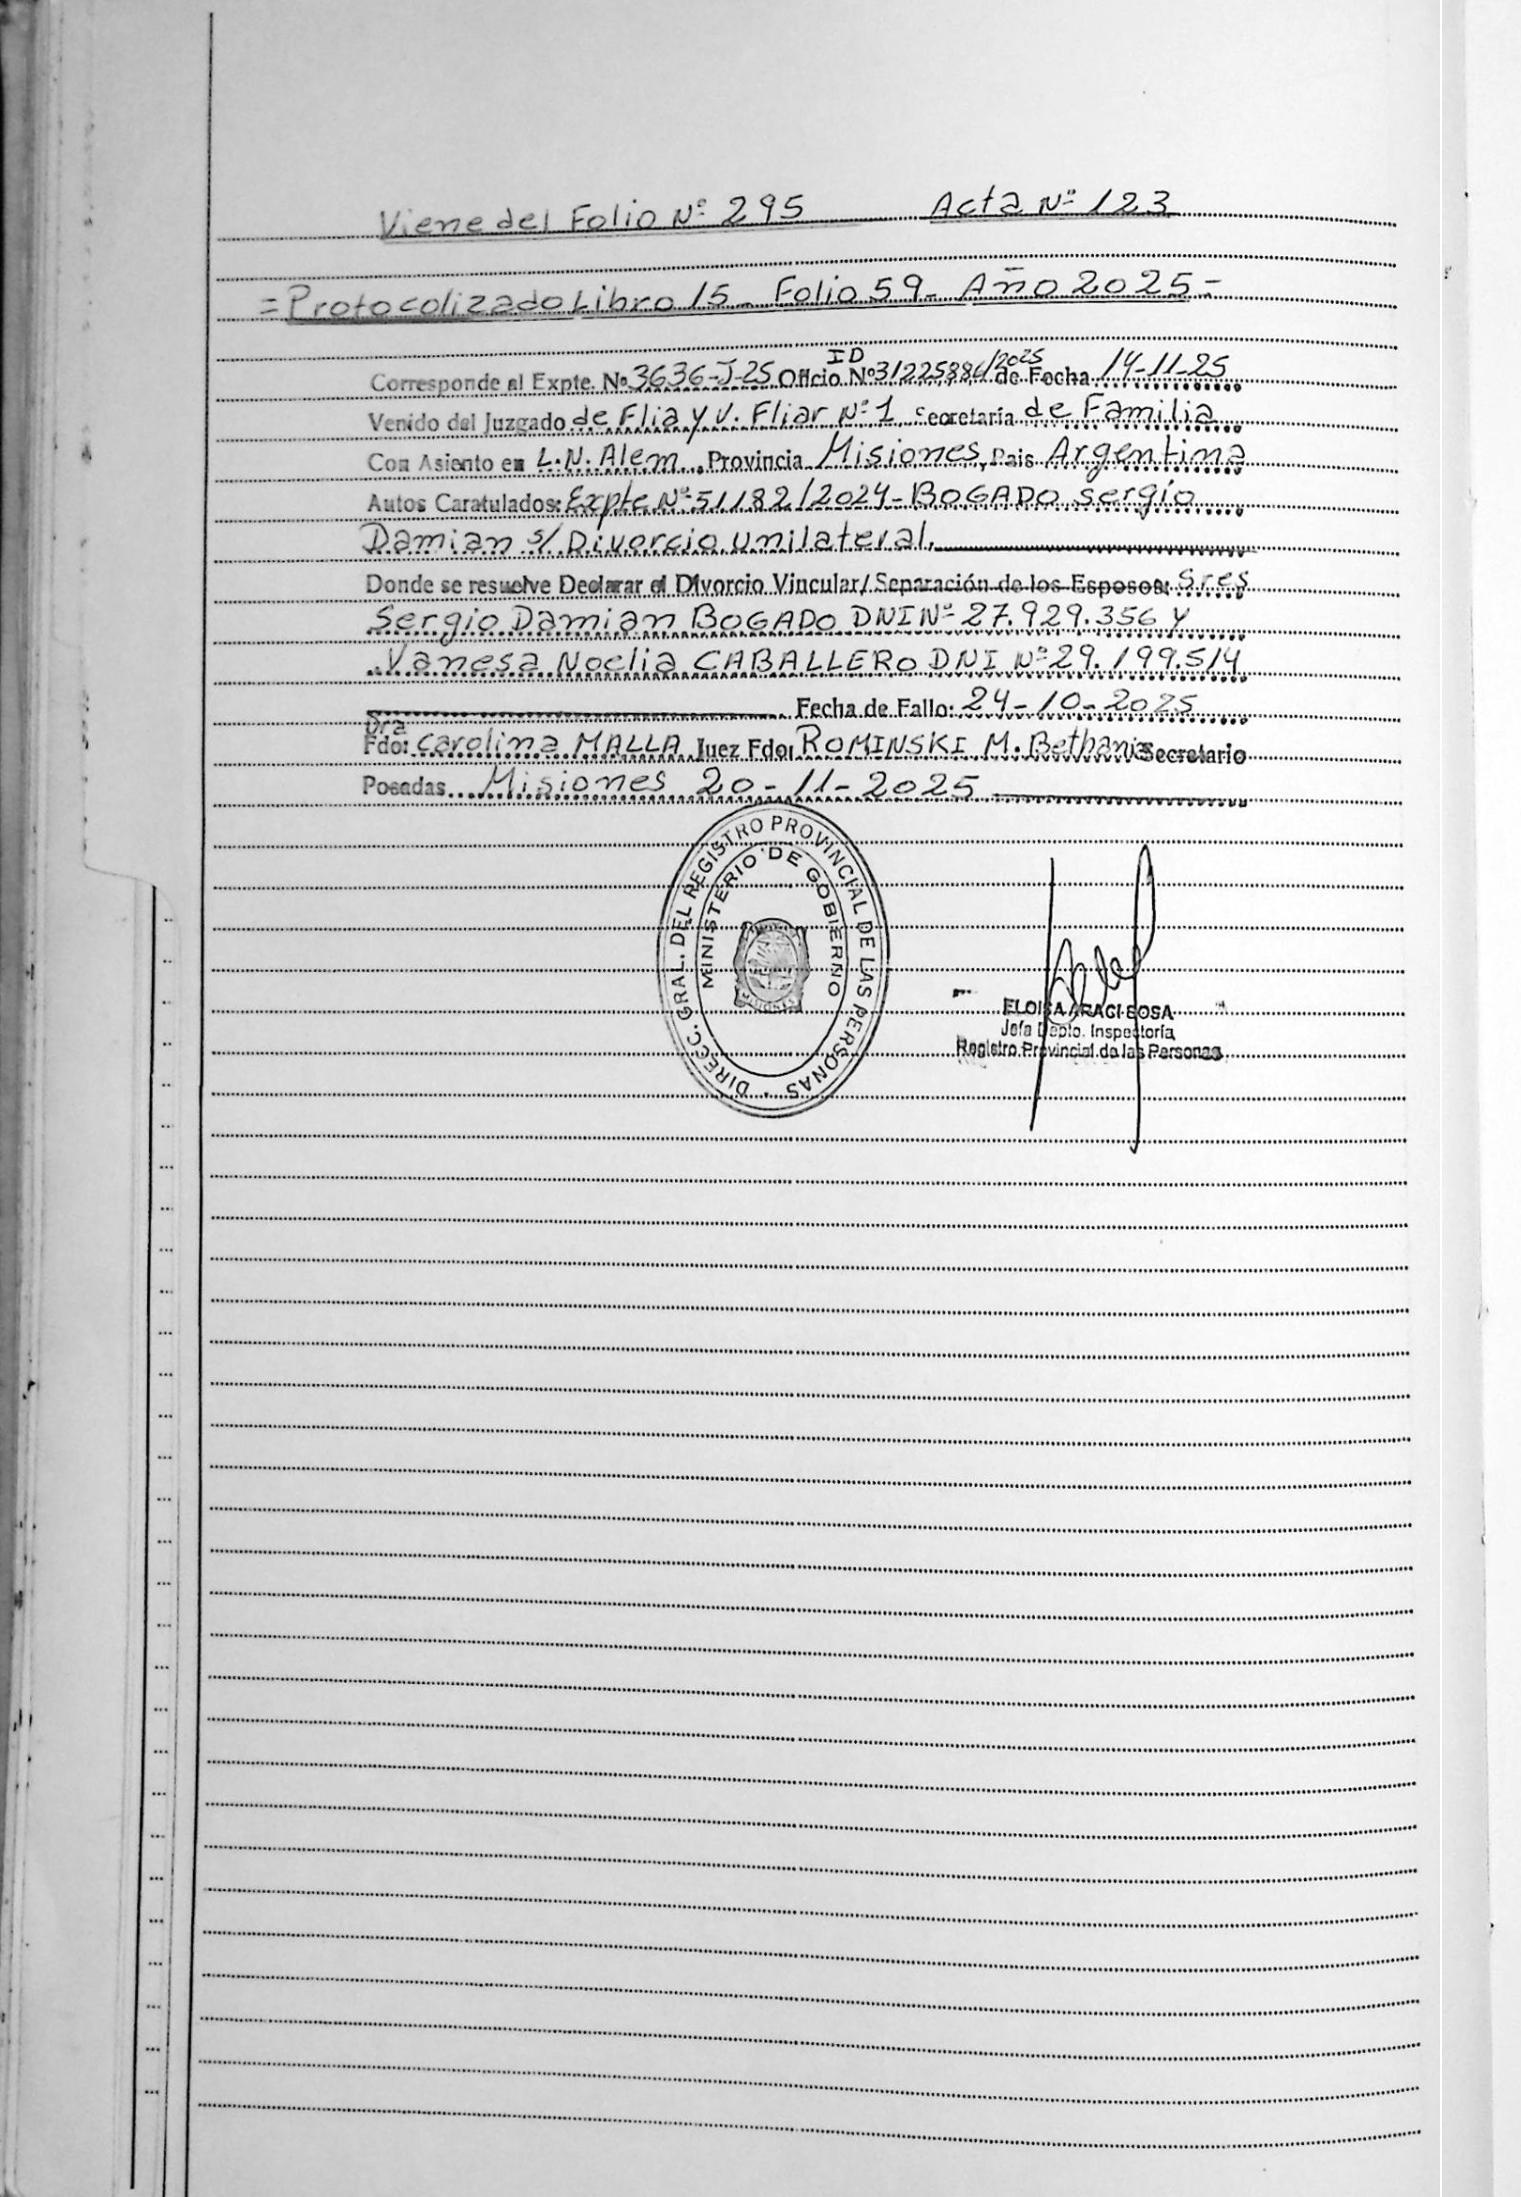 Viene del Folio Nº 295 Acta Nº 123
= Protocolizado Libro 15 - Folio 59 - Año 2025 -
Corresponde al Expte. Nº 3636-J-25 Oficio ID Nº 31225886/2025 de Fecha 14-11-25
Venido del Juzgado de Flia y V. Fliar Nº 1 Secretaría de Familia
Con Asiento en L.N. Alem, Provincia Misiones, Pais Argentina
Autos Caratulados: Expte Nº 51182/2024 - BOGADO Sergio
Damian s/ Divorcio unilateral.
Donde se resuelve Declarar el Divorcio Vincular/ Separación de los Esposos: Sres
Sergio Damian BOGADO DNI Nº 27.929.356 y
Vanesa Noelia CABALLERO DNI Nº 29.199.514
Fecha de Fallo: 24-10-2025
Dra
Fdo: Carolina MALLA Juez Fdo: ROMINSKI M. Bethania Secretario
Posadas Misiones 20-11-2025
DIRECC. GRAL. DEL REGISTRO PROVINCIAL DE LAS PERSONAS
MINISTERIO DE GOBIERNO
MISIONES
ELOISA ARACI SOSA
Jefa Depto. Inspectoría
Registro Provincial de las Personas